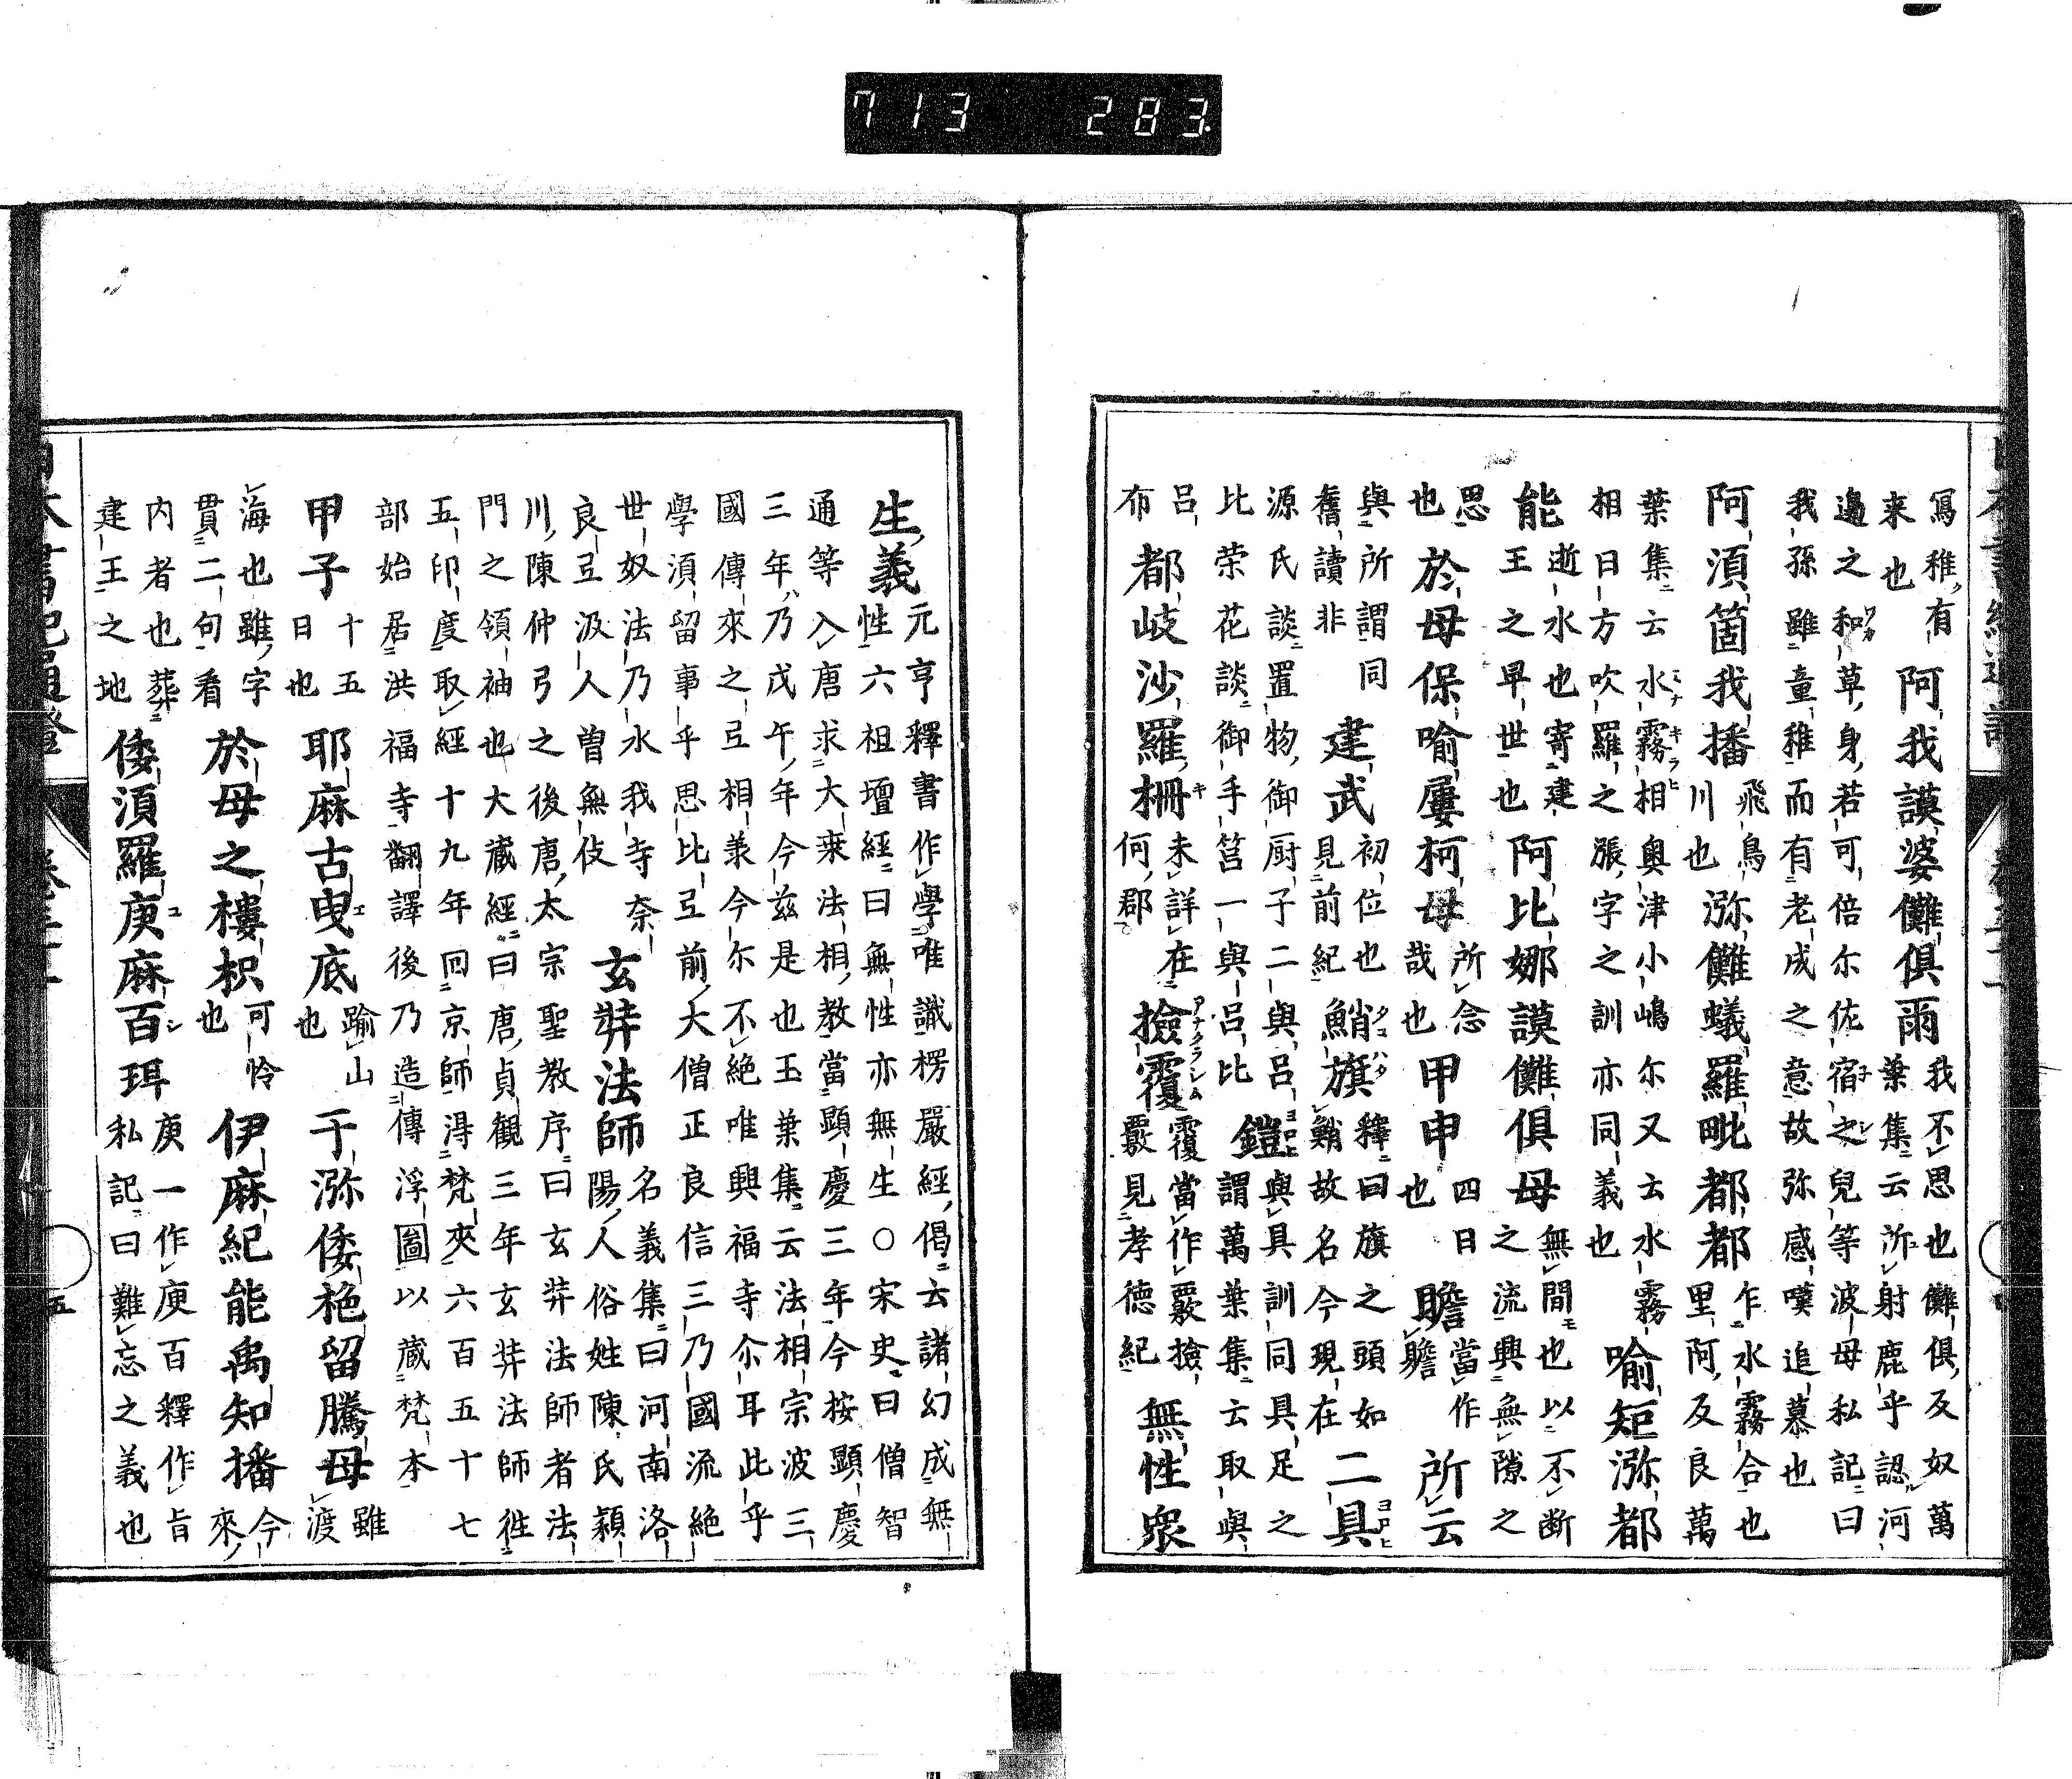 713 283
寫稚有
来也
阿我謨婆儺倶雨
我不思也儺倶反奴萬
葉集云所射鹿乎認河
邉之和草身若可倍尓佐宿之兒等波母私記曰
我孫雖童稚而有老成之意故弥感嘆追慕也
阿須箇我播
飛鳥
川也
泺儺蟻羅毗都都
乍水霧合也
里阿反良萬
葉集云水霧相奥津小嶋尓又云水霧
相日方吹羅之漲字之訓亦同義也
喩矩泺都
能
逝水也寄建
王之早世也
阿比娜謨儺倶母
無間也以不断
之流興無隙之
思
也
於母保喩屢柯母
所念
哉也
甲申
四日
也
贍
當作
贍
所云
與所謂同
舊讀非
建武
初位也
見前紀
鮹旗
釋曰旗之頭如
鮹故名今現在
二具
源氏談置物御厨子二與呂
比荣花談御手筥一與呂比
鎧
與具訓同具足之
謂萬葉集云取與
呂
布
都岐沙羅柵
未詳在
何郡
撿覆
覆當作覈撿
覈見孝德紀
無性衆
生義
元亨釋書作學唯識楞嚴經偈云諸幻成無
性六祖壇經曰無性亦無生○宋史曰僧智
通等入唐求大乗法相教當顯慶三年今按顯慶
三年乃戊午年今兹是也玉葉集云法相宗波三
國傳來之弖相兼今尓不絶唯興福寺尒耳此乎
學須留事乎思比弖前大僧正良信三乃國流絶
世奴法乃水我寺奈
良弖汲人曽無伎
玄弉法師
名義集曰河南洛
陽人俗姓陳氏潁
川陳仲弓之後唐太宗聖教序曰玄弉法師者法
門之領袖也大蔵經曰唐貞観三年玄弉法師徃
五印度取經十九年回京師得梵夾六百五十七
部始居洪福寺翻譯後乃造傳浮圖以蔵梵本
甲子
十五
日也
耶麻古曳底
踰山
也
于泺倭柂留騰母
雖
渡
海也雖字
貫二句看
於母之樓枳
可怜
也
伊麻紀能禹知播
今
來
内者也葬
建王之地
倭須羅庚麻百珥
庚一作庾百釋作旨
私記曰難忘之義也
日本書紀通證
五